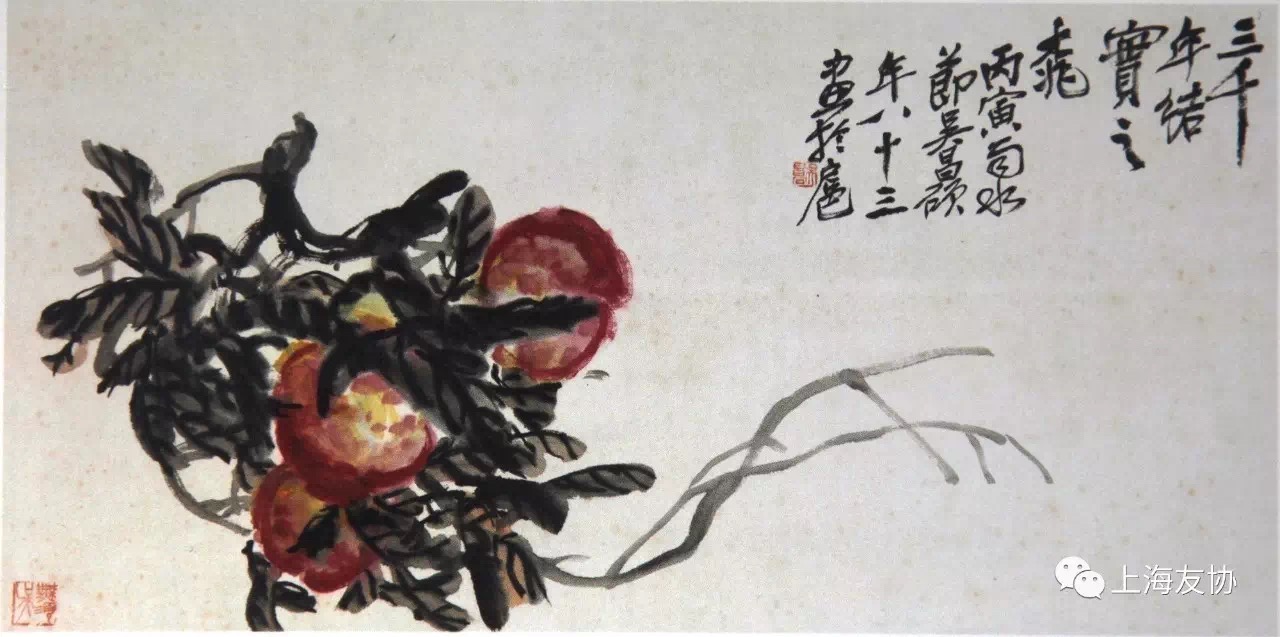 三千
年結
實之
桃
丙寅雨水
節吳昌碩
年八十三
畫於扈
上海友协